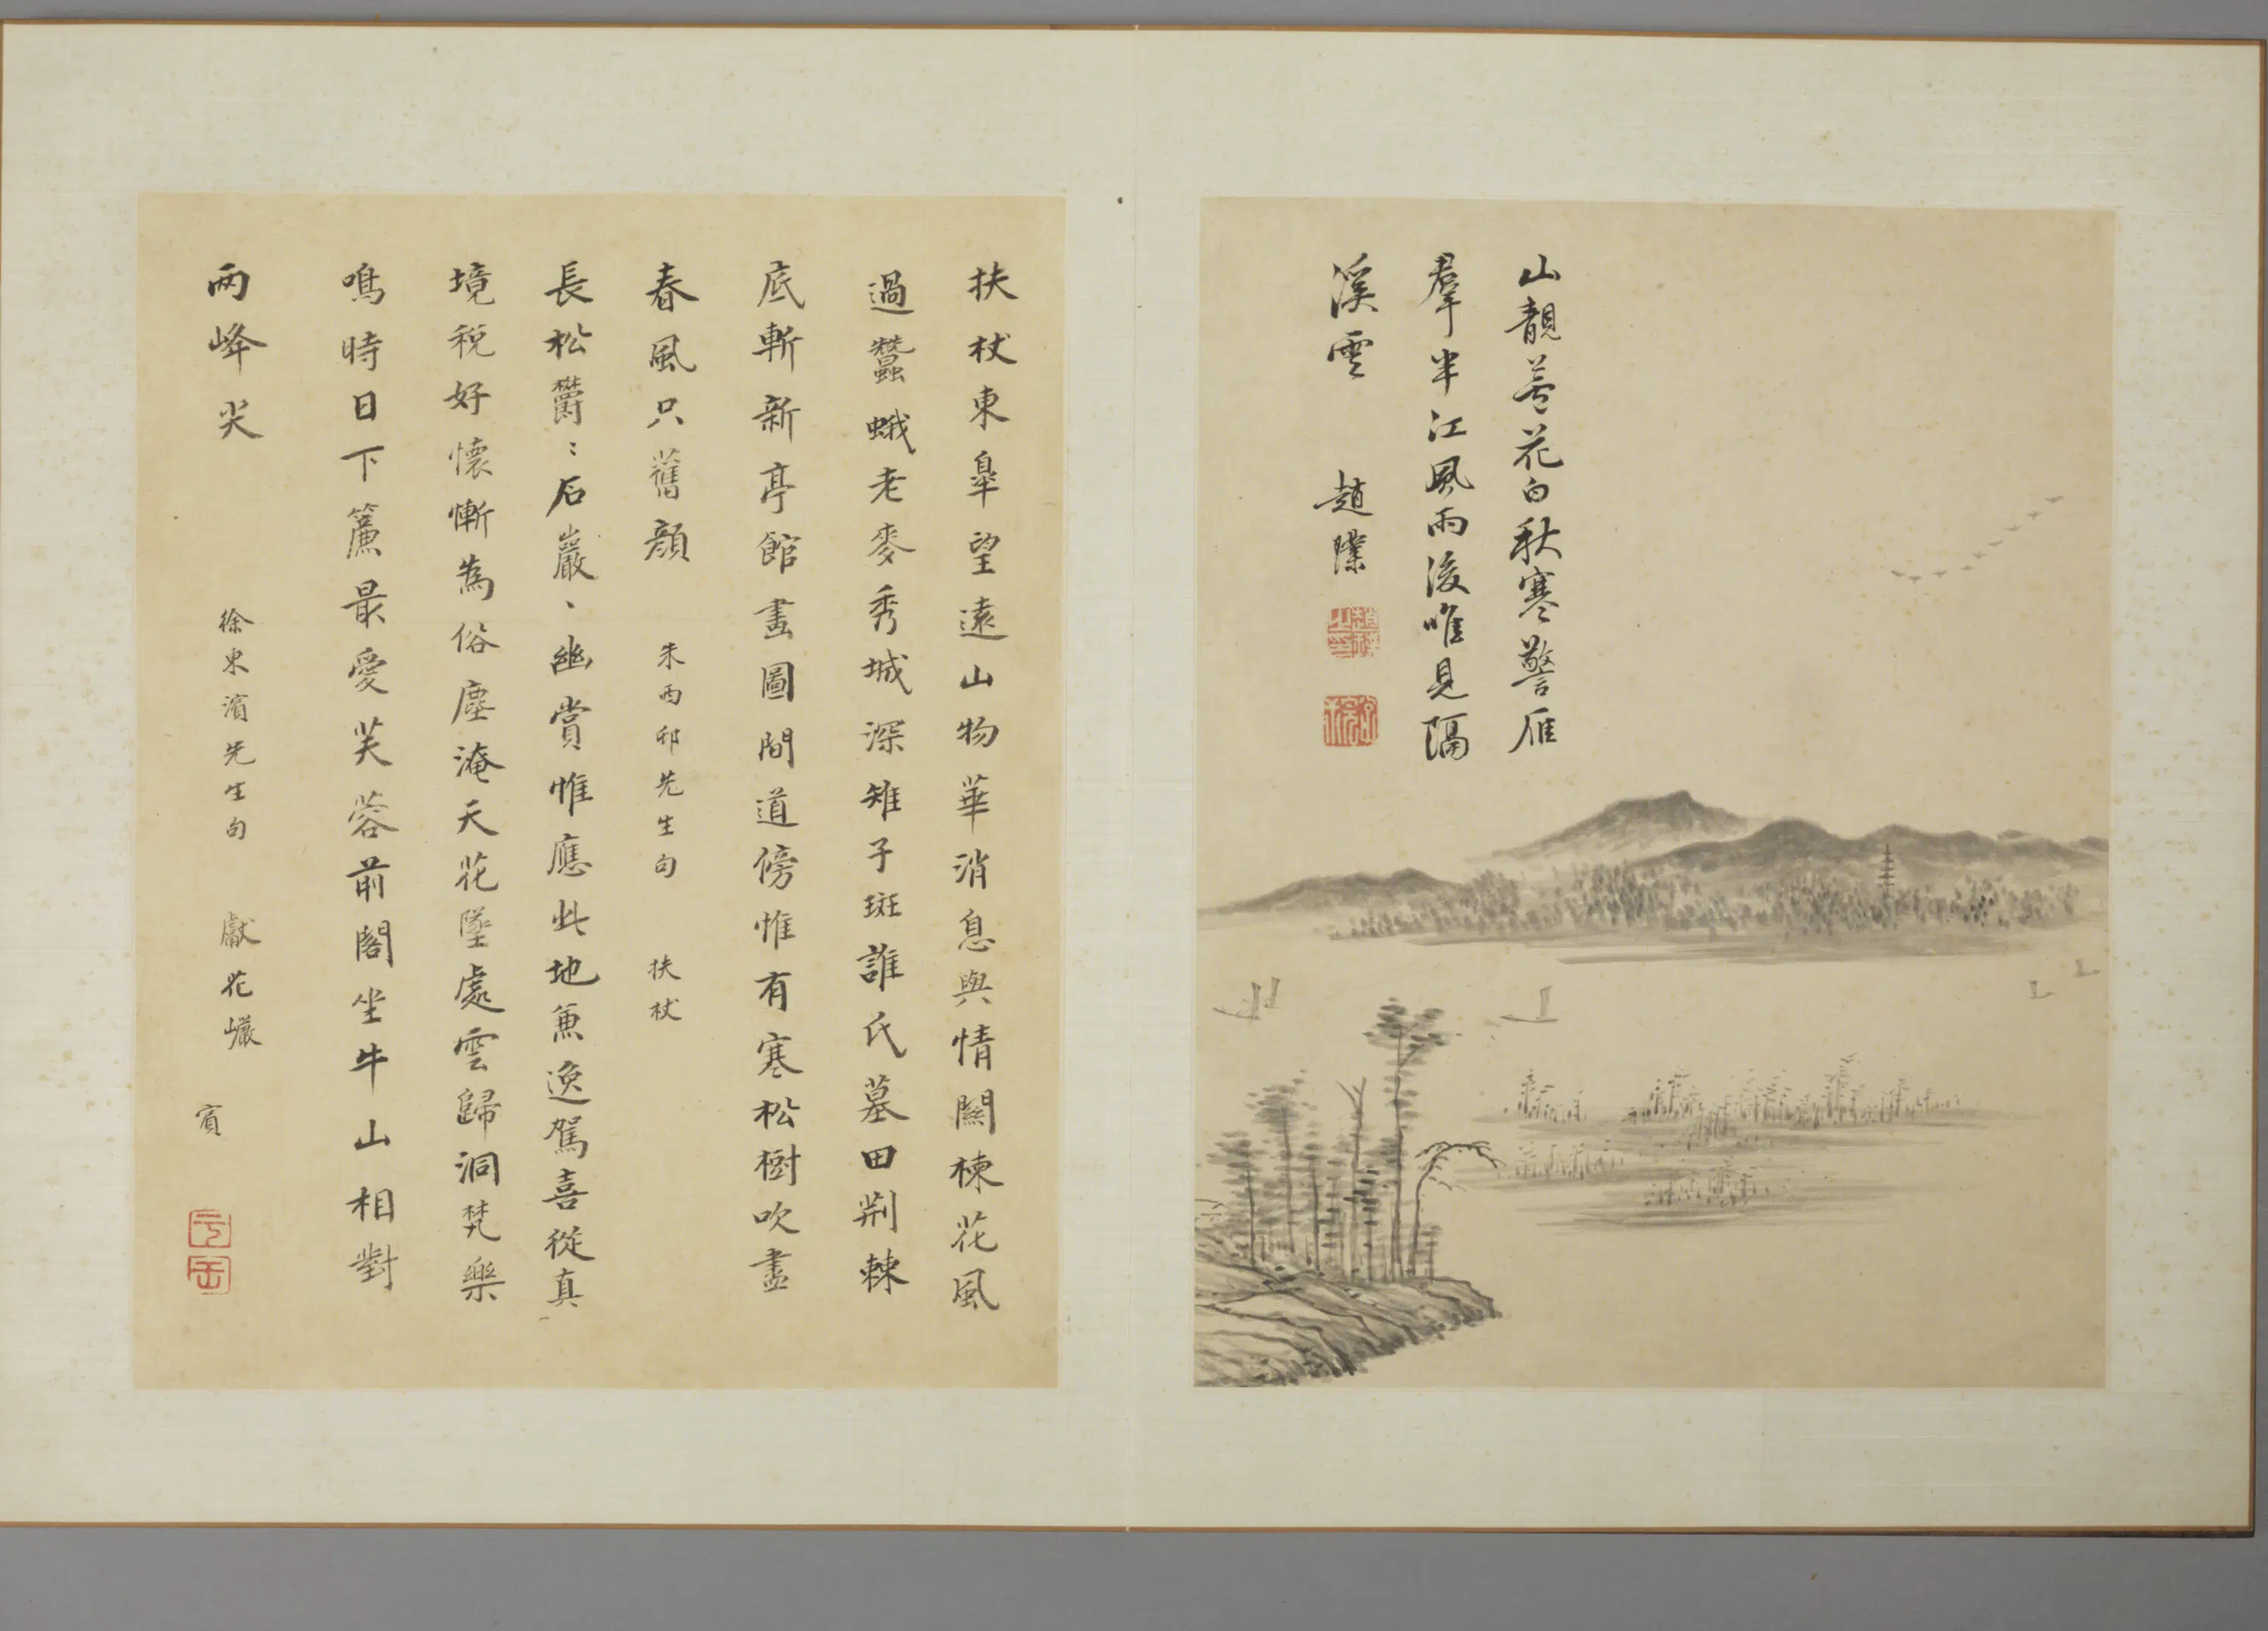 山靚葊花白秋寒警雁
羣半江風雨後唯見隔
溪雲 趙
扶杖東皐望遠山物華消息與情關楝花風
過蠶蛾老麥秀城深雉子斑誰氏墓田荆棘
底斬新亭館畫圖間道傍惟有寒松樹吹盡
春風只舊顔 朱西邨先生句 扶杖
長松欝〻石巖〻幽賞惟應此地兼逸駕喜從真
境稅好懷慚為俗塵淹天花墜處雲歸洞梵樂
鳴時日下簾最愛芙蓉前閣坐牛山相對
兩峰尖 徐東濱先生句 獻花巖 賓